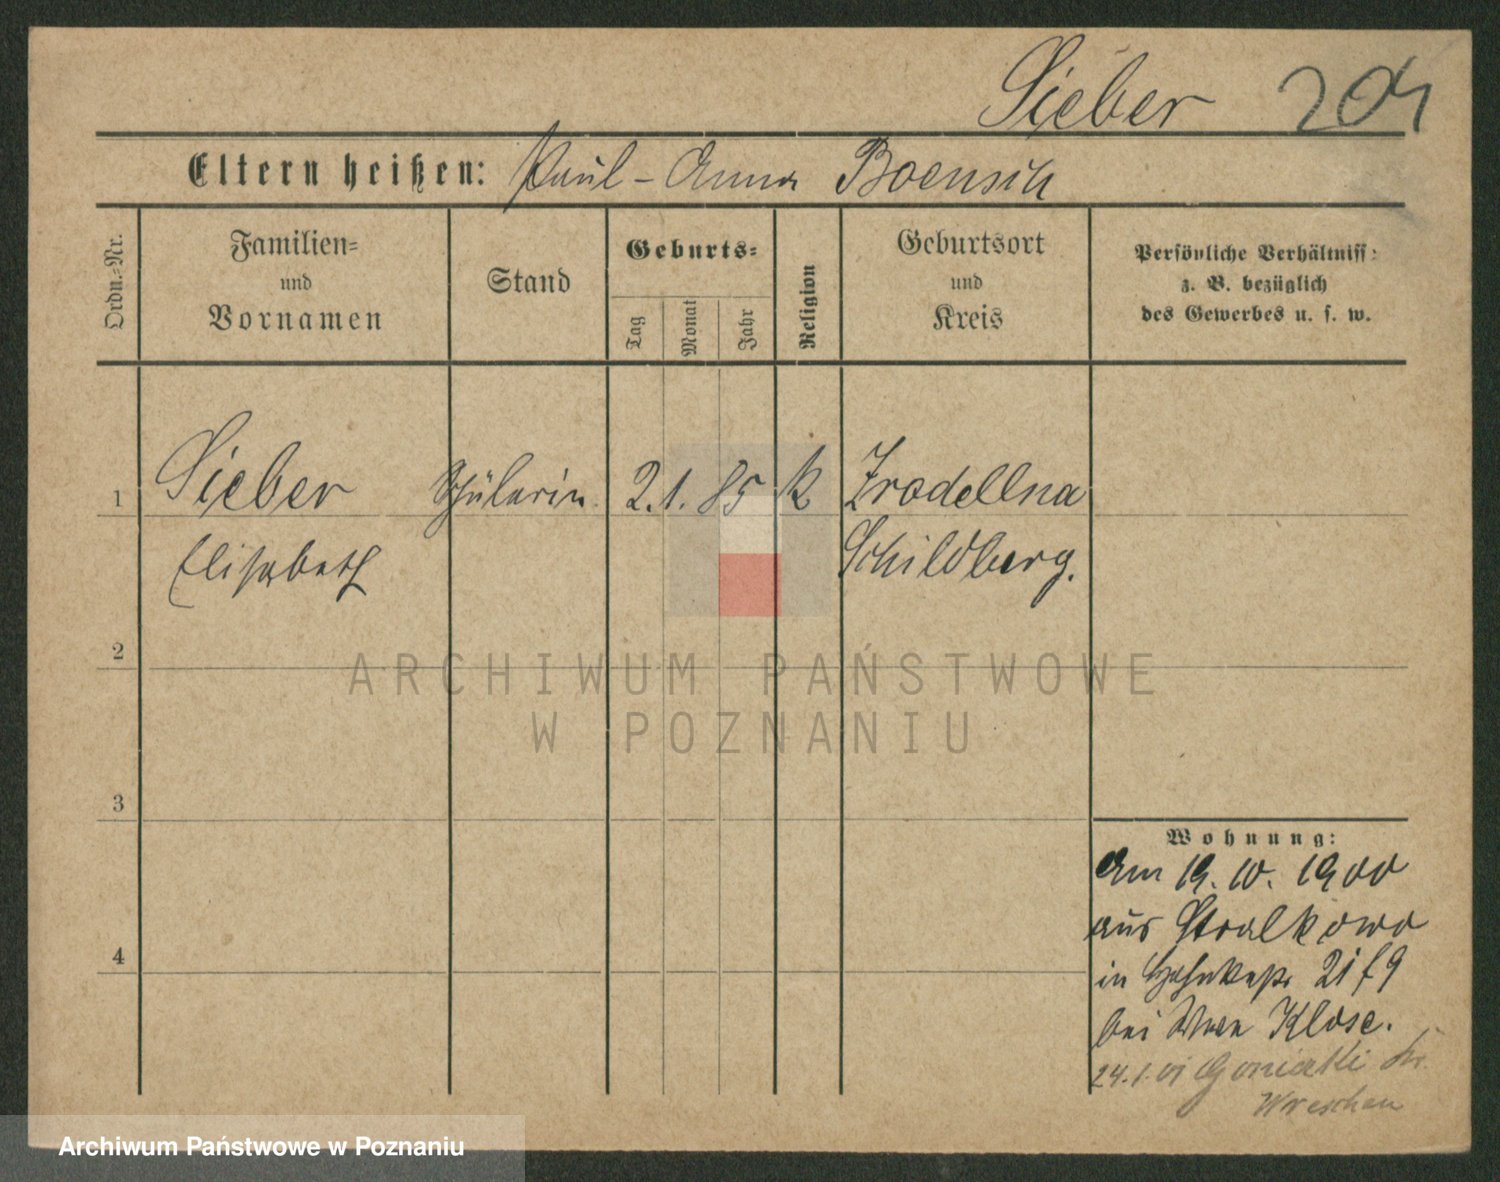 Sieber 204
Eltern heißen: Paul - Anna Boensch
Ordn.-Nr.
Familien-
und
Vornamen
Stand
Geburts-
Tag
Monat
Jahr
Religion
Geburtsort
und
Kreis
Persönliche Verhältniss:
z. B. bezüglich
des Gewerbes u. s. w.
1 Sieber Schülerin 2. 1. 85 k Zrodellna
Elisabeth Schildberg.
2
3
4
Wohnung:
Am 19. 10. 1900
aus Stralkowo
in 21 f 9
bei Klose.
24.1.01 Goniatki Kr.
Wreschen
ARCHIWUM PAŃSTWOWE
W POZNANIU
Archiwum Państwowe w Poznaniu